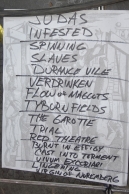 JUDAS
INFESTED
SPINNING
SLAVES
DURANCE VILE
VERDRINKEN
FLOW OF MAGGOTS
TYBURN FIELDS
THE GAROTTE
TRIAL
RED THEATRE
BURNT IN EFFIGY
CAST INTO TORMENT
VIVUM EXCORIARI
VIRGIN OF NUREMBERG